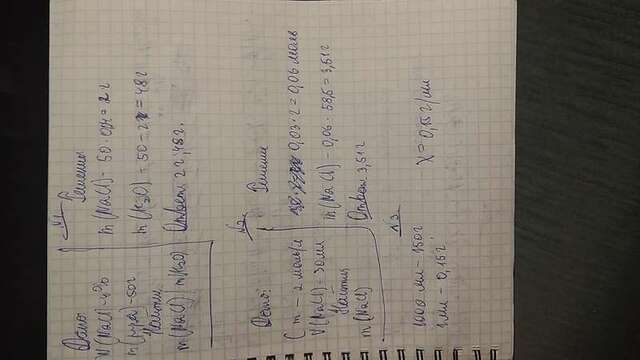 №1
Дано:
W(NaCl)-4%
m(р-ра)-50г
Найти
m(NaCl) m(H2O)
Решение
m(NaCl)- 50·0,04=2г
m(H2O)=50-2=48г
Ответ: 2г, 48г.
№2
Дано:
Cm - 2 моль/л
V(NaCl)=30мл
Найти
m(NaCl)
Решение
0,03·2=0,06 моль
m(NaCl)-0,06·58,5=3,51г
Ответ 3,51г
№3
1000 мл - 150г
1мл - 0,15г
X=0,15г/мл